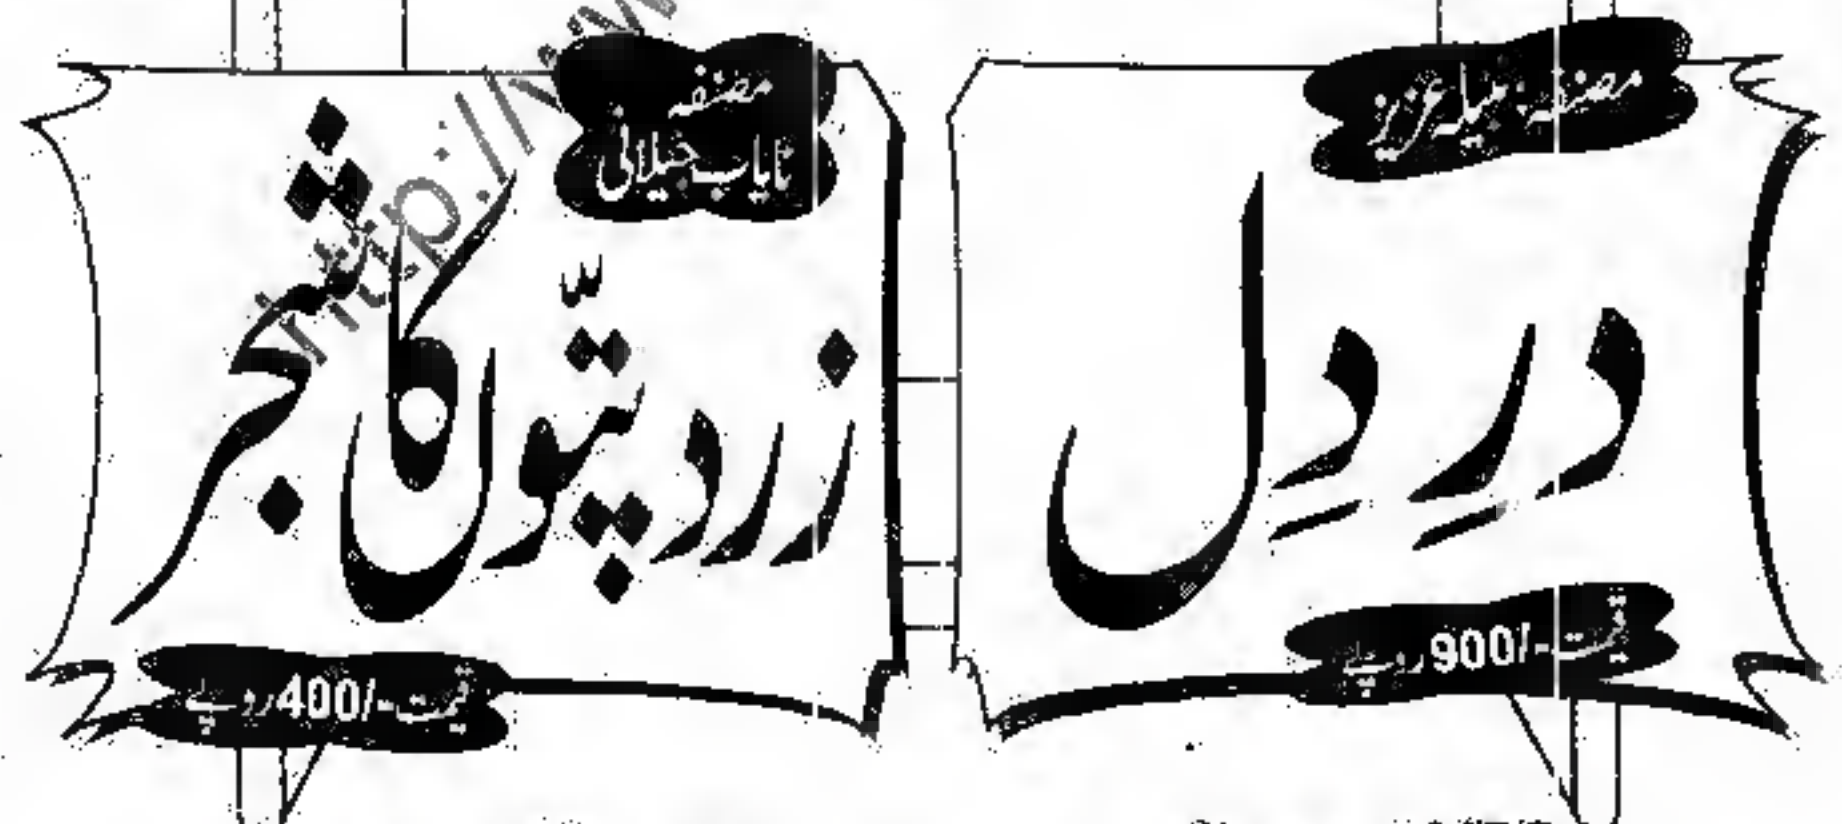 مصنفہ نبیلہ عزیز
درِ دِل
قیمت -/900 روپے
مصنفہ
نایاب جیلانی
زرد پتّوں کا شجر
قیمت -/400 روپے
http://